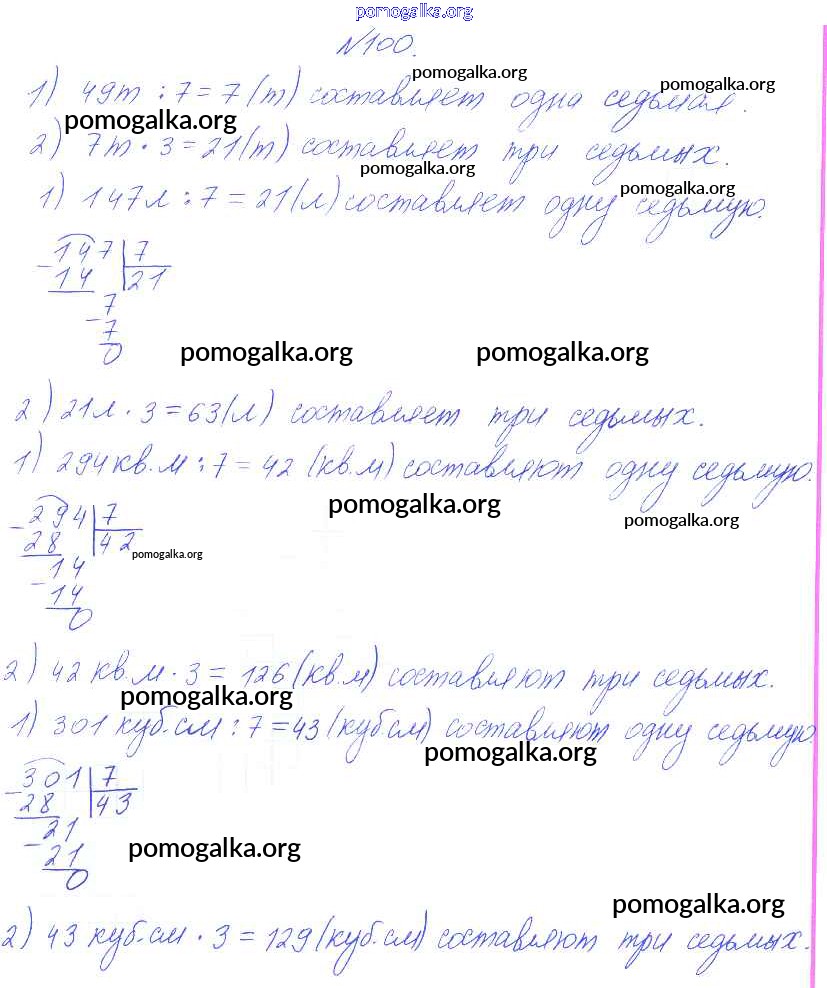 pomogalka.org
№100.
pomogalka.org
1) 49т : 7 = 7 (т) составляет одна седьмая.
pomogalka.org
pomogalka.org
2) 7т · 3 = 21 (т) составляет три седьмых.
pomogalka.org
pomogalka.org
1) 147л : 7 = 21 (л) составляет одну седьмую.
147 | 7
- 14 | 21
7
- 7
0
pomogalka.org pomogalka.org
2) 21л · 3 = 63 (л) составляет три седьмых.
1) 294 кв.м : 7 = 42 (кв.м) составляют одну седьмую.
pomogalka.org
pomogalka.org
- 294 | 7
28 | 42
pomogalka.org
- 14
14
0
2) 42 кв.м · 3 = 126 (кв.м) составляют три седьмых.
pomogalka.org
1) 301 куб.см : 7 = 43 (куб.см) составляют одну седьмую.
pomogalka.org
- 301 | 7
28 | 43
- 21
21
0
pomogalka.org
pomogalka.org
2) 43 куб.см · 3 = 129 (куб.см) составляют три седьмых.